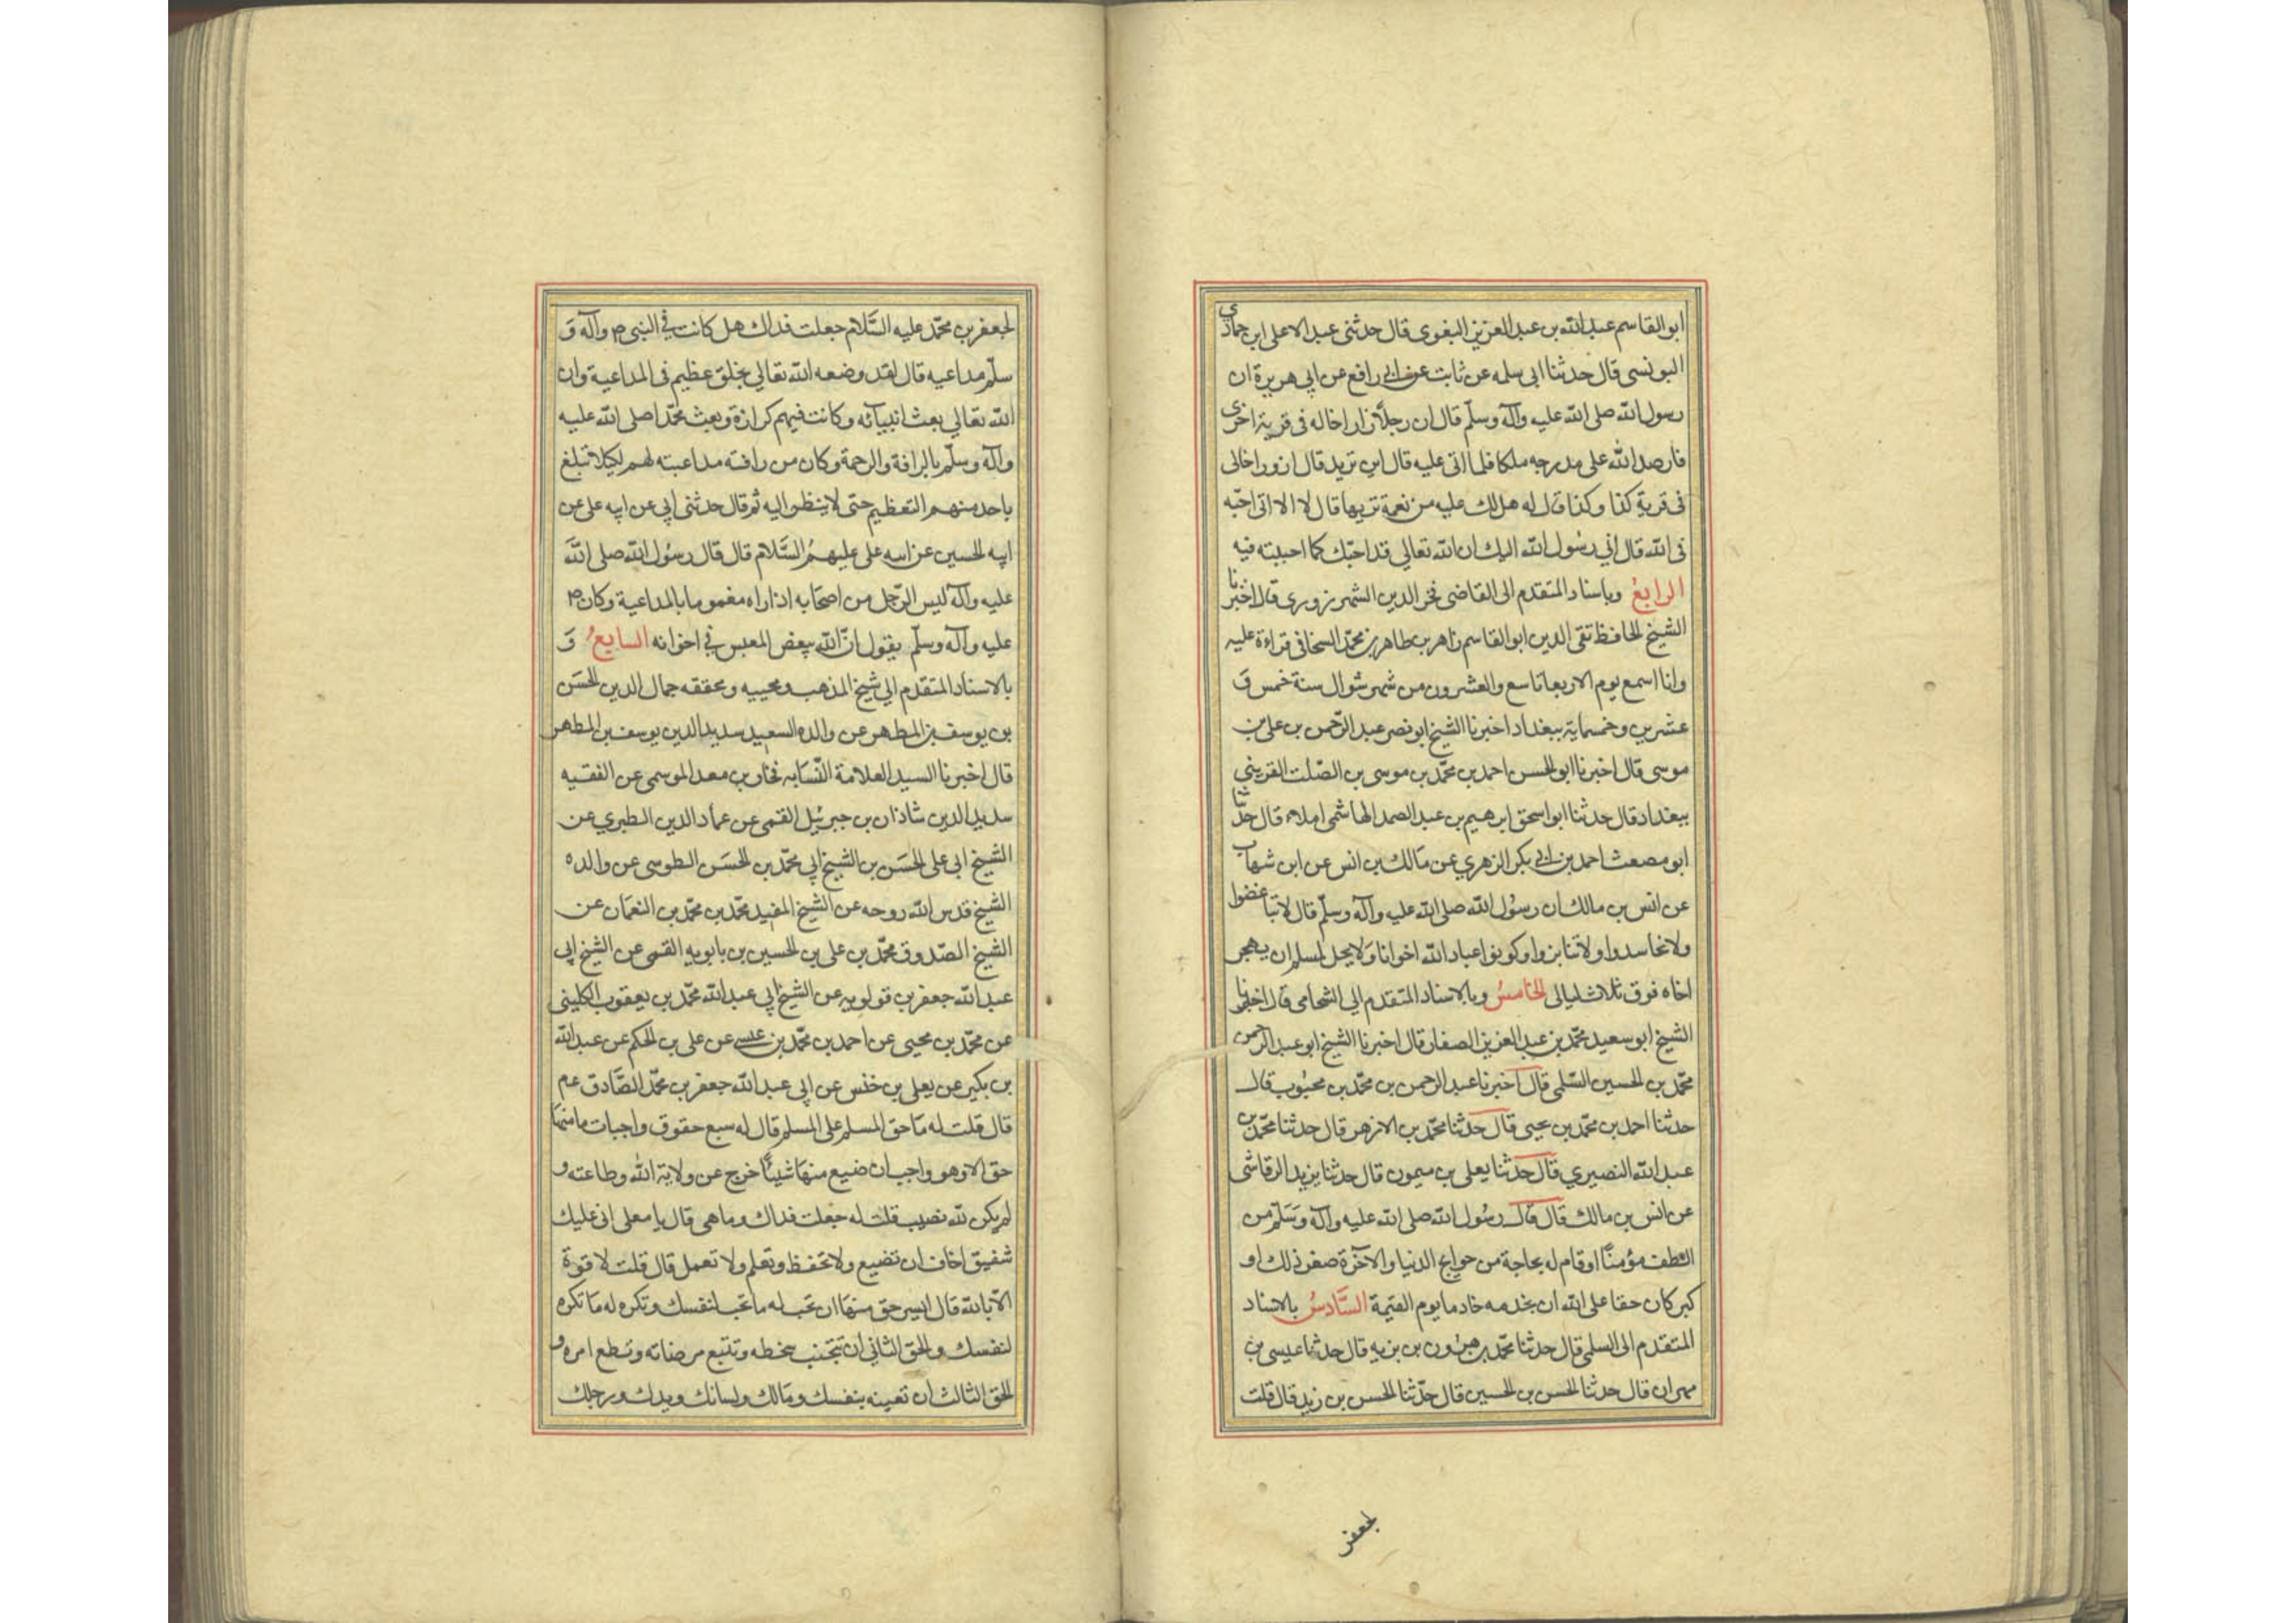 ابو القاسم عبد الله بن عبد العزيز البغوى قال حدثنى عبد الاعلى ابن حمادى
البونسى قال حدثنا ابى سلمه عن ثابت عن ابى رافع عن ابى هريرة ان
رسول الله صلى الله عليه وآله وسلّم قال ان رجلاً زار اخا له فى قرية اخرى
فارصد الله على مدرجه ملكا فلما اتى عليه قال اين تريد قال ازور اخا لى
فى قرية كذا وكذا قال له هل لك عليه من نعمة تربها قال لا الا انى احبّه
فى الله قال انى رسول الله اليك ان الله تعالى قد احبّك كما احببته فيه
الرابعُ وباسناد المتقدم الى القاضى فخر الدين الشهرزورى قال اخبرنا
الشيخ الحافظ تقى الدين ابو القاسم زاهر بن طاهر بن محمّد السحافى قراءة عليه
وانا اسمع يوم الاربعا تاسع والعشرون من شهر شوال سنة خمس وَ
عشرين وخمسماية ببغداد اخبرنا الشيخ ابو نصر عبد الرّحمن بن على بن
موسى قال اخبرنا ابو الحسن احمد بن محمّد بن موسى بن الصّلت القرينى
ببغداد قال حدثنا ابو اسحق ابرهيم بن عبد الصمد الهاشمى املاء قال حدّثنا
ابو مصعب احمد بن ابى بكر الزهري عن مَالك بن انس عن ابن شهاب
عن انس بن مالك ان رسُول الله صلى الله عليه وآله وسلّم قال لا تباغضوا
ولا تحاسدوا ولا تنابزوا وكونوا عباد الله اخوانا وَلا يحل لمسلم ان يهجر
اخاه فوق ثلاث ليالى الخامسُ وبالاسناد المتقدم الى الشحامى قال اخبرنا
الشيخ ابو سعيد محمّد بن عبد العزيز الصفار قال اخبرنا الشيخ ابو عبد الرحمن
محمّد بن الحسين السّلمى قال اخبرنا عبد الرحمن بن محمّد بن محبُوب قال
حدثنا احمد بن محمّد بن يحيى قال حدثنا محمّد بن الازهر قال حدثنا محمّد بن
عبد الله النصيري قال حدثنا يعلى بن ميمون قال حدثنا يزيد الرقاشى
عن انس بن مالك قال قال رسُول الله صلى الله عليه وآله وَسَلّم من
الطف مؤمنًا او قام له بحاجة من حوايج الدنيا والآخرة صغر ذلك او
كبر كان حقا على الله ان يخدمه خادما يوم القيمة السَّادسُ بالاسناد
المتقدم الى السلمى قال حدثنا محمّد بن هرُون بن بزيه قال حدثنا عيسى بن
مهران قال حدثنا الحسن بن الحسين قال حدّثنا الحسن بن زيد قال قلت
لجعفر
لجعفر بن محمّد عليه السَّلام جعلت فداك هل كانت فى النبى ص وآله وَ
سلّم مداعبه قال لقد وضعه الله تعالى بخلق عظيم فى المداعبة وان
الله تعالى بعث انبيائه وكانت فيهم كزازة وبعث محمّدا صلى الله عليه
وآله وسلّم بالرافة والرحمة وكان من رافته مداعبته لهم لكيلا تبلغ
باحد منهم التعظيم حتى لا ينظر اليه ثم قال حدثنى ابى عن ابيه على عن
ابيه الحسين عن ابيه على عليهمُ السَّلام قال قال رسُول الله صلى اللهَ
عليه وآله ليس الرّجل من اصحَابه اذا راه مغموما بالمداعبة وكان ص
عليه وآله وسلّم يقول انّ الله يبغض المعبس فى اخوانه السابعُ وَ
بالاسناد المتقدم الى شيخ المذهب ومحييه ومحققه جمال الدين الحسَن
بن يوسف بن المطهر عن والده السعيد سديد الدين يوسف بن المطهر
قال اخبرنا السيد العلامة النّسَابه فخار بن معد الموسى عن الفقيه
سديد الدين شاذان بن جبرئيل القمى عن عماد الدين الطبري عن
الشيخ ابى على الحسَن بن الشيخ ابى محمّد بن الحسَن الطوسى عن والده
الشيخ قدس الله روحه عن الشيخ المفيد محمّد بن محمّد بن النعمَان عن
الشيخ الصّدوق محمّد بن على بن الحسين بن بابويه القمى عن الشيخ ابى
عبد الله جعفر بن قولويه عن الشيخ ابى عبد الله محمّد بن يعقوب الكلينى
عن محمّد بن يحيى عن احمد بن محمّد بن عيسى عن على بن الحكم عن عبد الله
بن بكير عن يعلى بن خنس عن ابى عبد الله جعفر بن محمّد الصَّادق عم
قال قلت له مَا حق المسلم على المسلم قال له سبع حقوق واجبات ما منهَا
حق الا وهو واجب ان ضيع منهَا شيئًا خرج عن ولاية الله وطاعته و
لم يكن لله نصيب قلت له جعلت فداك وما هى قال يا معلى انى عليك
شفيق اخاف ان تضيع ولا تحفظ وتعلم ولا تعمل قال قلت لا قوة
الّا بالله قال ايسر حق منهَا ان تحب له ما تحب لنفسك وتكره له مَا تكره
لنفسك والحق الثانى ان تجتنب سخطه وتتبع مرضاته وتطع امره و
الحق الثالث ان تعينه بنفسك ومَالك ولسانك ويدك ورجلك